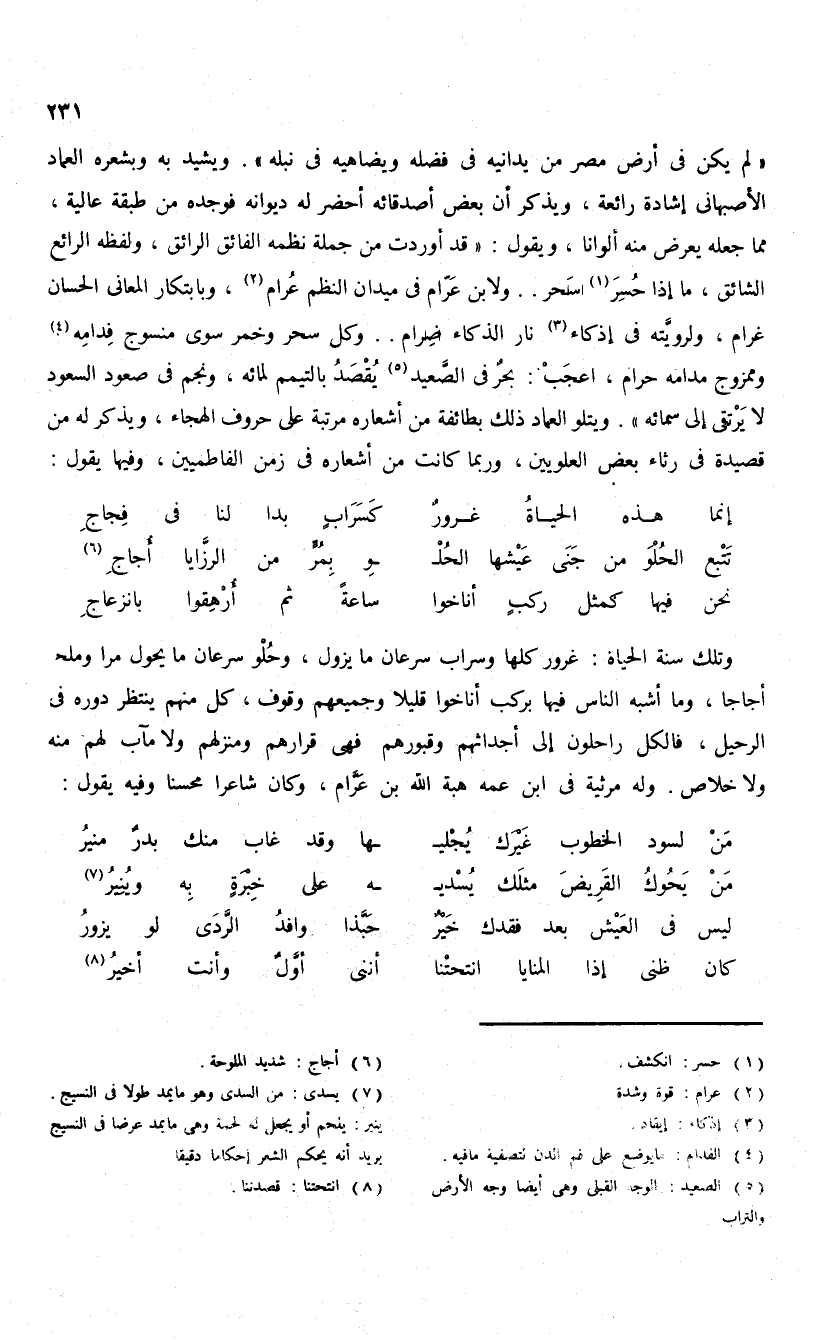 ٢٣١
« لم يكن فى أرض مصر من يدانيه فى فضله ويضاهيه فى نبله » . ويشيد به وبشعره العماد
الأصبهانى إشادة رائعة ، ويذكر أن بعض أصدقائه أحضر له ديوانه فوجده من طبقة عالية ،
مما جعله يعرض منه ألوانا ، ويقول : « قد أوردت من جملة نظمه الفائق الرائق ، ولفظه الرائع
الشائق ، ما إذا حُسِرَ(١) اسَتحر . . ولابن عَرّام فى ميدان النظم عُرام(٢) ، وبابتكار المعانى الحسان
غرام ، ولرويَّته فى إذكاء(٣) نار الذكاء ضِرام . . وكل سحر وخمر سوى منسوج فِدامِه(٤)
وممزوج مدامه حرام ، اعجَبْ : بحرٌ فى الصَّعيد(٥) يُقْصَدُ بالتيمم لمائه ، ونجم فى صعود السعود
لا يَرْتقى إلى سمائه » . ويتلو العماد ذلك بطائفة من أشعاره مرتبة على حروف الهجاء ، ويذكر له من
قصيدة فى رثاء بعض العلويين ، وربما كانت من أشعاره فى زمن الفاطميين ، وفيها يقول :
إنما هــذه الحيــاةُ غــرورٌ كَسَرَابٍ بدا لنا فى فِجاجِ
تَتْبع الحُلْوَ من جَنَى عَيْشها الحُلْـ ـوِ بِمُرٍّ من الرزَّايا أُجاجِ(٦)
نحن فيها كمثل ركبٍ أناخوا ساعةً ثم أُرْهِقوا بانزعاجِ
وتلك سنة الحياة : غرور كلها وسراب سرعان ما يزول ، وحُلْو سرعان ما يحول مرا وملحا
أجاجا ، وما أشبه الناس فيها بركب أناخوا قليلا وجميعهم وقوف ، كل منهم ينتظر دوره فى
الرحيل ، فالكل راحلون إلى أجداثهم وقبورهم فهى قرارهم ومنزلهم ولا مآب لهم منه
ولا خلاص . وله مرثية فى ابن عمه هبة الله بن عَرَّام ، وكان شاعرا محسنا وفيه يقول :
مَنْ لسود الخطوب غَيْرَك يُجْليـ ـها وقد غاب منك بدرٌ منيرُ
مَنْ يَحُوكُ القَرِيضَ مثلَك يُسْديـ ـه على خِبْرَةٍ بِه ويُنِيرُ(٧)
ليس فى العَيْش بعد فقدك خَيْرٌ حَبَّذا وافدُ الرَّدَى لو يزورُ
كان ظنى إذا المنايا انتحتْنا أننى أوَّلٌ وأنت أخيرُ(٨)
(١) حسر : انكشف .
(٢) عرام : قوة وشدة
(٣) إذكاء : إيقاد .
(٤) الفدام : مايوضع على فم الدن لتصفية مافيه .
(٥) الصعيد : الوجه القبلى وهى أيضا وجه الأرض
والتراب
(٦) أجاج : شديد الملوحة .
(٧) يسدى : من السدى وهو مايمد طولا فى النسيج .
ينير : يلحم أو يجعل له لحمة وهى مايمد عرضا فى النسيج
يريد أنه يحكم الشعر إحكاما دقيقا
(٨) انتحتنا : قصدتنا .